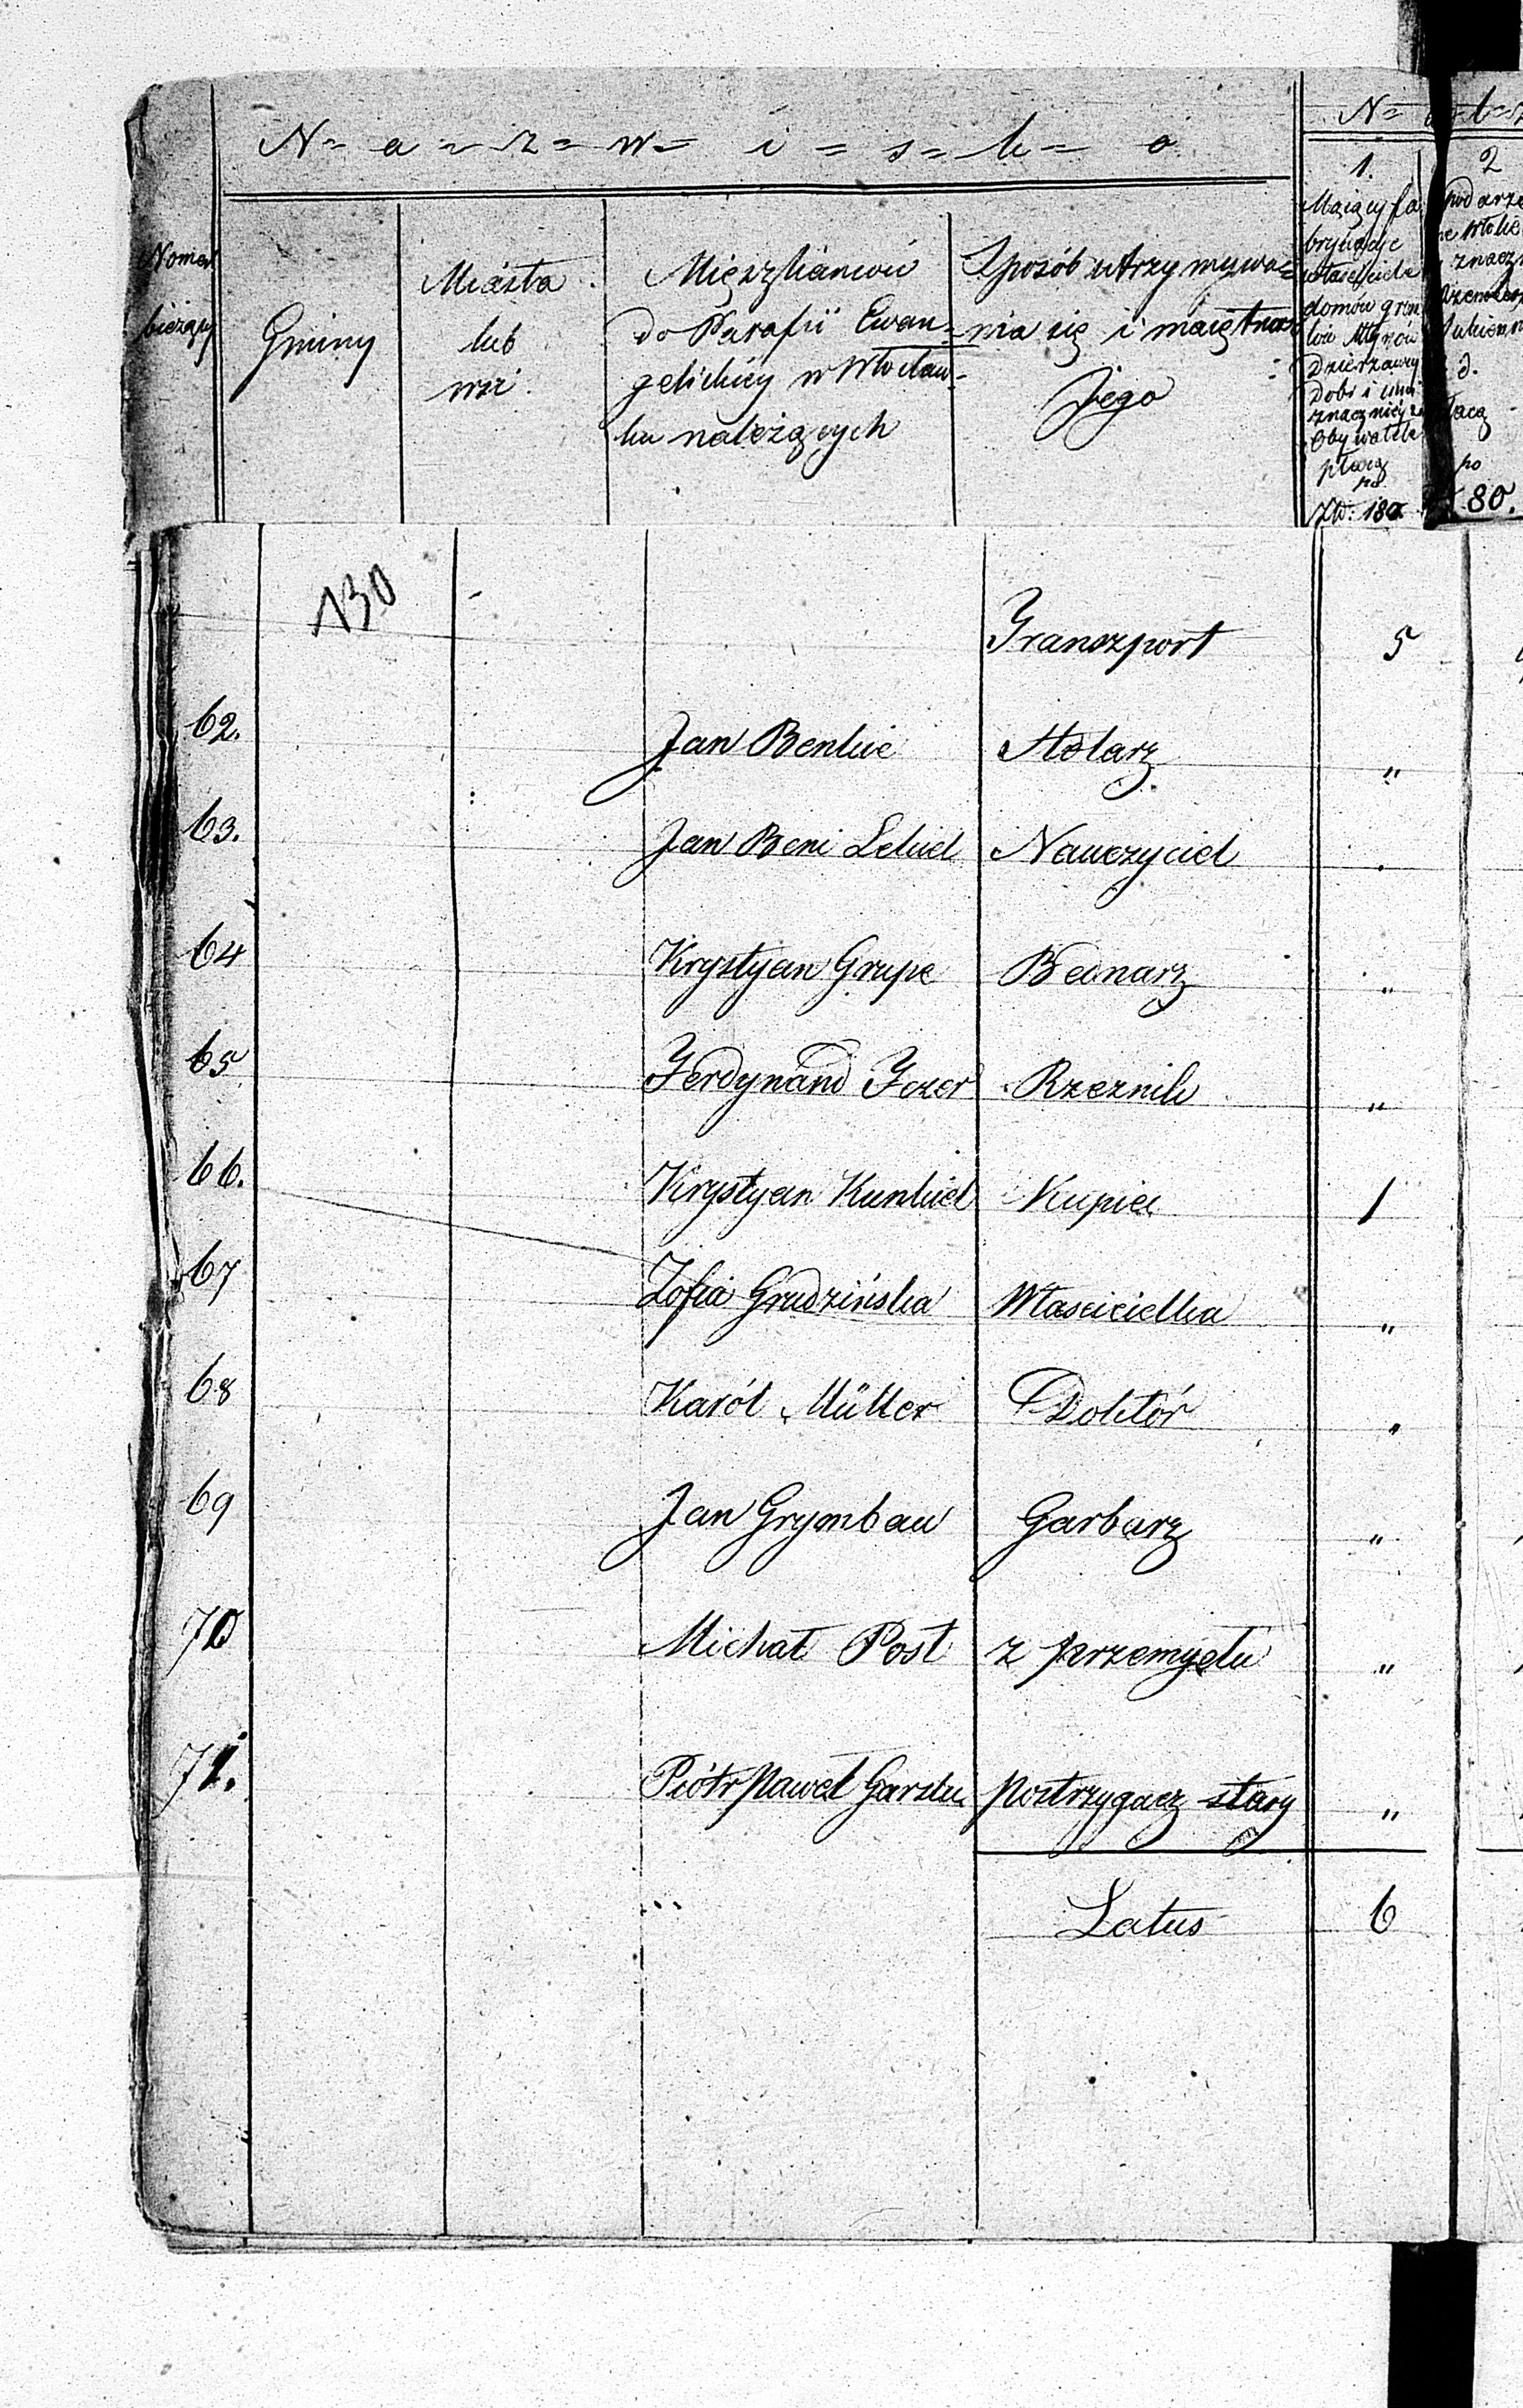 N=a=z=w=i=s=k=o
Numer
bieżący
Gminy
Miasta
lub
wsi
Mięszkańców
do Parafii Ewan=
gelickiey w Włocław=
ku należących
Sposób utrzymywa=
nia się i maiętnos
Jego
1.
Maiący fa
brykacje
właściciele
domów grun
tów Młynów
Dzierzawcy
Dobr i inni
znacznieysi
Obywatele
płacą
po
Złp: 180
2
po
80.
130
Transzport 5
62. Jan Benkie Stolarz "
63. Jan Beni Lekiel Nauczyciel .
64 Krystyan Grupe Bednarz "
65 Ferdynand Fezer Rzeznik "
66. Krystyan Kunkiel Kupiec 1
67 Zofia Grudzińska Własicielka "
68 Karól Müller Doktór "
69 Jan Grymbau Garbarz "
70 Michał Post z przemysłu "
71. Piótr Paweł Garzke postrzygacz stary "
Latus 6